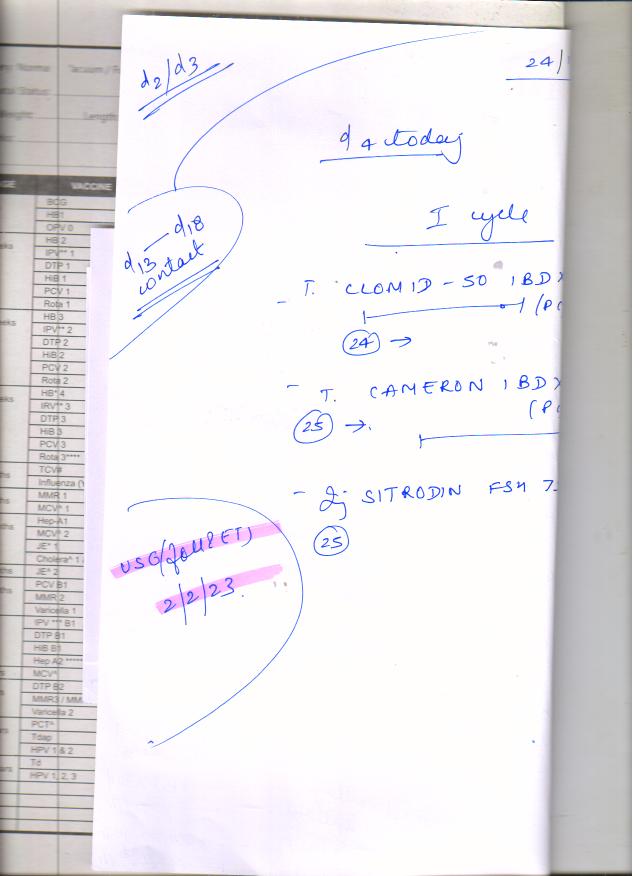 d2/d3
24/
d4 today
d13 — d18
contact
I cycle
- T. CLOMID - 50 1 BD X
(PC
24 →
- T. CAMERON 1 BD X
(PC
25 →
- Inj SITRODIN FSH 7
25
USG(
ET)
2/2/23.
Vacuum / F
Length
VACCINE
BCG
HB1
OPV 0
HB 2
IPV** 1
DTP 1
HiB 1
PCV 1
Rota 1
HB 3
IPV** 2
DTP 2
HiB 2
PCV 2
Rota 2
HB* 4
IRV** 3
DTP 3
HiB 3
PCV 3
Rota 3****
TCV#
Influenza (
MMR 1
MCV* 1
Hep-A1
MCV* 2
JE^ 1
Cholera^ 1
JE^ 2
PCV B1
MMR 2
Varicella 1
IPV *** B1
DTP B1
HiB B1
Hep A2 *****
MCV*
DTP B2
MMR3 / MM
Varicella 2
PCT^
Tdap
HPV 1 & 2
Td
HPV 1, 2, 3